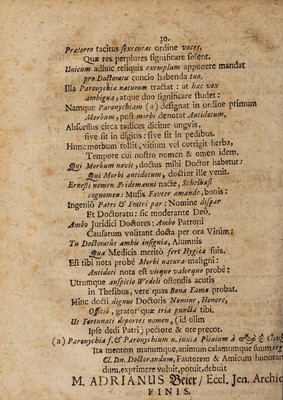 30.
Prætereo tacitus sexcentas ordine voces,
Quæ res perplures significare solent.
Unicum adhuc reliquis exemplum apponere mandat
pro Doctoratu concio habenda tuo.
Illa Paronychia naturam tractat: at hæc vox
ambigua, atque duo significare studet:
Namque Paronychiam (a) designat in ordine primum
Morbum, post morbi denotat Antidotum,
Abscessus circa radices dicitur ungvis,
sive sit in digitis: sive sit in pedibus.
Hunc morbum tollit, vitium vel corrigit herba,
Tempore cui nostro nomen & omen idem.
Qui Morbum novit, doctus mihi Doctor habetur:
Qui Morbi antidotum, doctior ille venit.
Ernesti nomen Pridemanni nacte, Schelhas
cognomen: Musis Fautor amande, bonis:
Ingeniô Patri & Fratri par: Nomine dispar
Et Doctoratu: sic moderante Deô,
Ambo Juridici Doctores: Ambo Patroni
Causarum volitant docta per ora Virûm:
Tu Doctoratus ambis insignia, Alumnis
Quæ Medicis meritò fert Hygiea suis.
Est tibi nota probè Morbi natura maligni:
Antidoti nota est viresque valorque probè:
Utrumque auspiciô Wedeli ostendis acutis
in Thesibus, vere quas Bona Fama probat.
Hinc docti dignus Doctoris Nomine, Honore,
Officiô, grator quæ tria puncta tibi.
Ut Fortunati deportes nomen, (id olim
Ipse dedi Patri) pectore & ore precor.
Ita mentem manumque, animum calamumque suum, erga
Cl. Dn. Doctorandum, Fautorem & Amicum honoran
dum, exprimere voluit, potuit, debuit
M. ADRIANUS Beier / Eccl. Jen. Archid
FINIS.